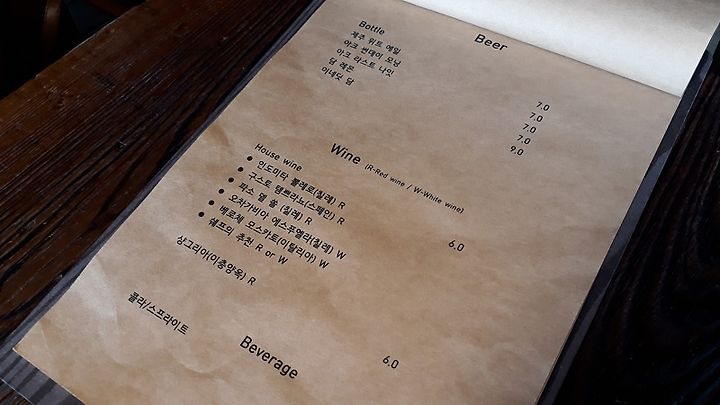 Beer
Bottle
제주 위트 에일 7.0
아크 썬데이 모닝 7.0
아크 라스트 나잇 7.0
담 레몬 7.0
이네딧 담 9.0
Wine (R-Red wine / W-White wine)
House wine 6.0
• 인도미타 뿔레로(칠레) R
• 구스토 템쁘라뇨(스페인) R
• 파소 델 쏠 (칠레) R
• 오차가비아 에스푸엘라(칠레) W
• 베로체 모스카토(이탈리아) W
• 쉐프의 추천 R or W
상그리아(이층양옥) R 6.0
Beverage
콜라/스프라이트